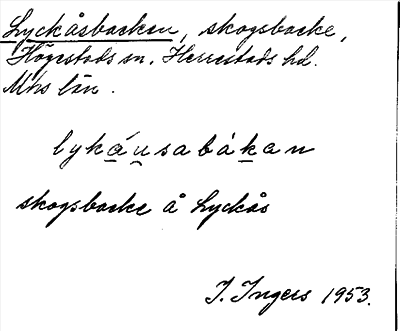 Lyckåsbacken, skogsbacke,
Högestads sn. Herrestads hd.
Mhs län.
lykáu̯sabákan
skogsbacke å Lyckås
I. Ingers 1953.